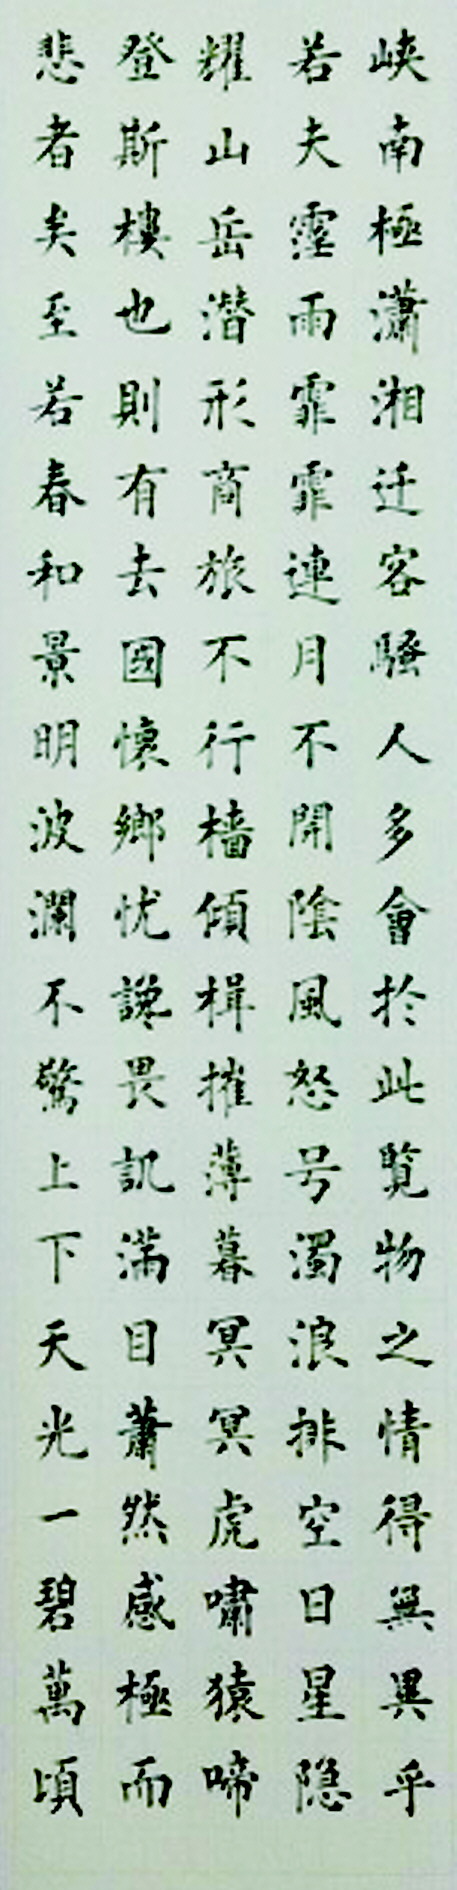 峽南極瀟湘迁客騷人多會於此覽物之情得無異乎
若夫霪雨霏霏連月不開陰風怒号濁浪排空日星隐
耀山岳潛形商旅不行檣傾楫摧薄暮冥冥虎嘯猿啼
登斯樓也則有去國懷鄉忧讒畏譏滿目蕭然感極而
悲者矣至若春和景明波瀾不驚上下天光一碧萬頃